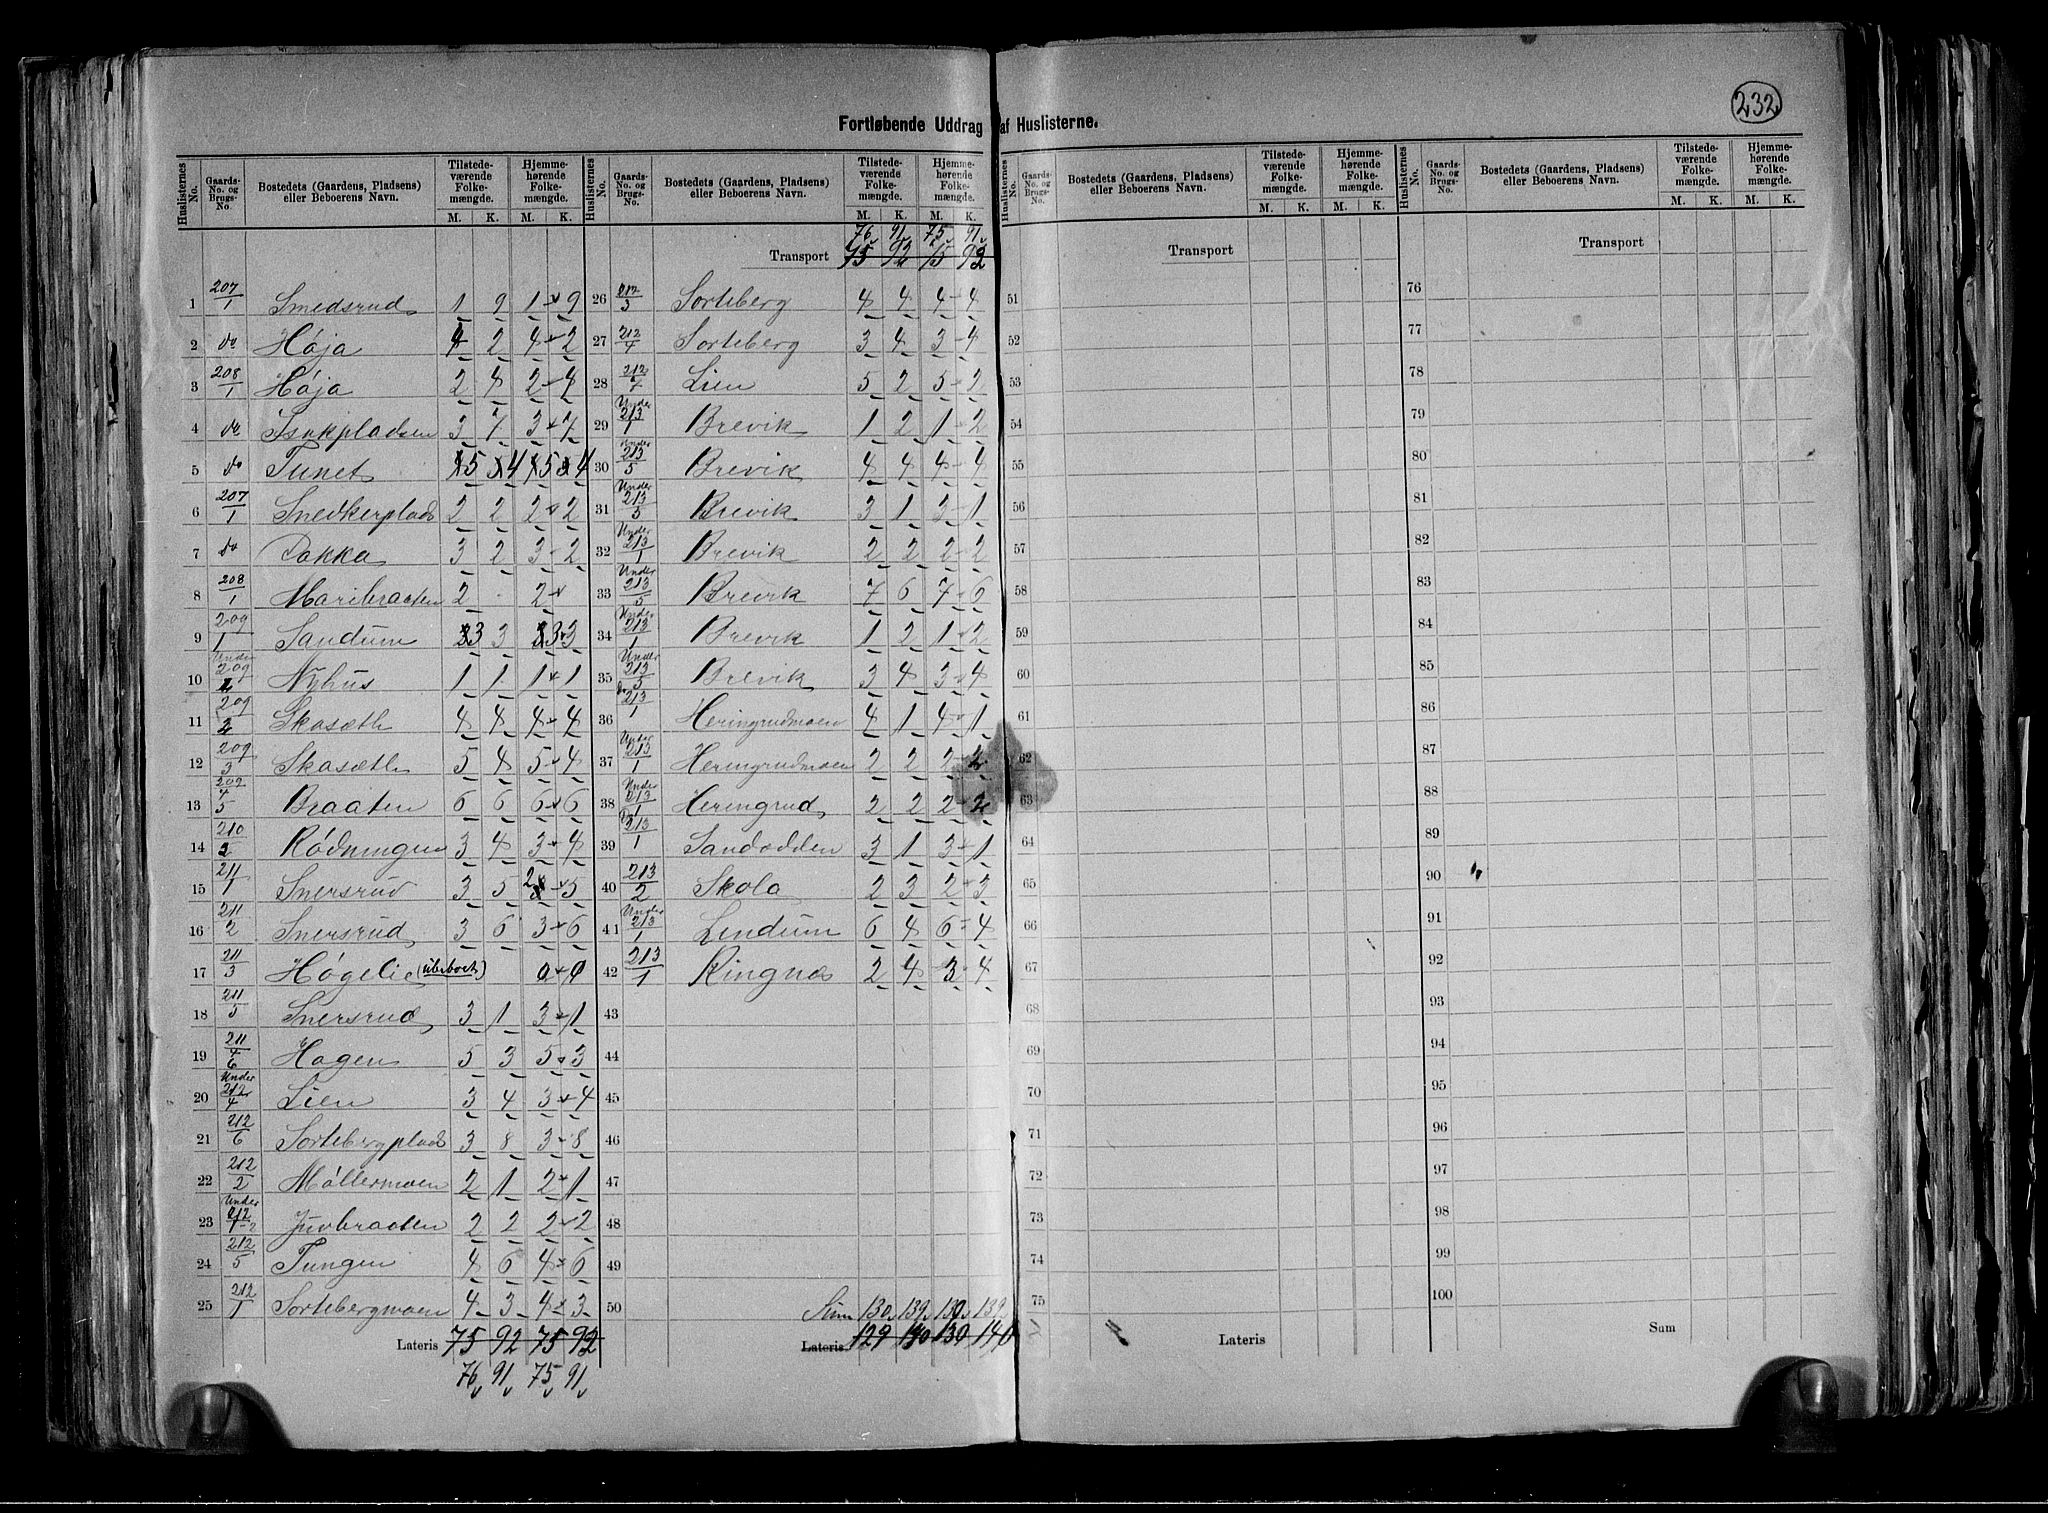 232
Fortløbende Uddrag af Huslisterne.
Huslisternes No. | Gaards-No. og Brugs-No. | Bostedets (Gaardens, Pladsens) eller Beboerens Navn. | Tilstedeværende Folkemængde. M. K. | Hjemmehørende Folkemængde. M. K.
1 207/1 Smedsrud 1 9 1 9
2 do Høja 4 2 4 2
3 208/1 Høja 2 4 2 4
4 do Isakpladsen 3 7 3 7
5 do Tunet 5 4 5 4
6 207/1 Snedkerplads 2 2 2 2
7 do Dakka 3 2 3 2
8 208/1 Maribraaten 2 2
9 209/1 Sandum 3 3 3 3
10 Under 209/2 Nyhus 1 1 1 1
11 209/2 Skasæth 4 4 4 4
12 209/3 Skasæth 5 4 5 4
13 209/4 5 Braaten 6 6 6 6
14 210/2 Rødningen 3 4 3 4
15 211/1 Snersrud 3 5 2 5
16 211/2 Snersrud 3 6 3 6
17 211/3 Høgelie (ubeboet) 0 0
18 211/5 Snersrud 3 1 3 1
19 211/4 6 Hagen 5 3 5 3
20 Under 212/4 Lien 3 4 3 4
21 212/6 Sortebergplads 3 8 3 8
22 212/2 Møllermoen 2 1 2 1
23 Under 212/1-2 Juvbraaten 2 2 2 2
24 212/5 Tungen 4 6 4 6
25 212/1 Sortebergmoen 4 3 4 3
Lateris 75 92 75 92
76 91 75 91
Huslisternes No. | Gaards-No. og Brugs-No. | Bostedets (Gaardens, Pladsens) eller Beboerens Navn. | Tilstedeværende Folkemængde. M. K. | Hjemmehørende Folkemængde. M. K.
76 91 75 91
Transport 75 92 75 92
26 212/3 Sorteberg 4 4 4 4
27 212/4 Sorteberg 3 4 3 4
28 212/7 Lien 5 2 5 2
29 Under 213/1 Brevik 1 2 1 2
30 Under 213/5 Brevik 4 4 4 4
31 Under 213/3 Brevik 3 1 3 1
32 Under 213/1 Brevik 2 2 2 2
33 Under 213/5 Brevik 7 6 7 6
34 Under 213/1 Brevik 1 2 1 2
35 Under 213/3 Brevik 3 4 3 4
36 do 213/1 Heringrudmoen 4 1 4 1
37 Under 213/1 Heringrudmoen 2 2 2 2
38 Under 213/1 Heringrud 2 2 2 2
39 do 213/1 Sandodden 3 1 3 1
40 213/2 Skola 2 3 2 3
41 Under 213/1 Lendum 6 4 6 4
42 213/1 Ringnes 2 4 3 4
43
44
45
46
47
48
49
50 Sum 130 139 130 139
Lateris 129 140 130 140
Huslisternes No. | Gaards-No. og Brugs-No. | Bostedets (Gaardens, Pladsens) eller Beboerens Navn. | Tilstedeværende Folkemængde. M. K. | Hjemmehørende Folkemængde. M. K.
Transport
51
52
53
54
55
56
57
58
59
60
61
62
63
64
65
66
67
68
69
70
71
72
73
74
75
Lateris
Huslisternes No. | Gaards-No. og Brugs-No. | Bostedets (Gaardens, Pladsens) eller Beboerens Navn. | Tilstedeværende Folkemængde. M. K. | Hjemmehørende Folkemængde. M. K.
Transport
76
77
78
79
80
81
82
83
84
85
86
87
88
89
90
91
92
93
94
95
96
97
98
99
100
Sum